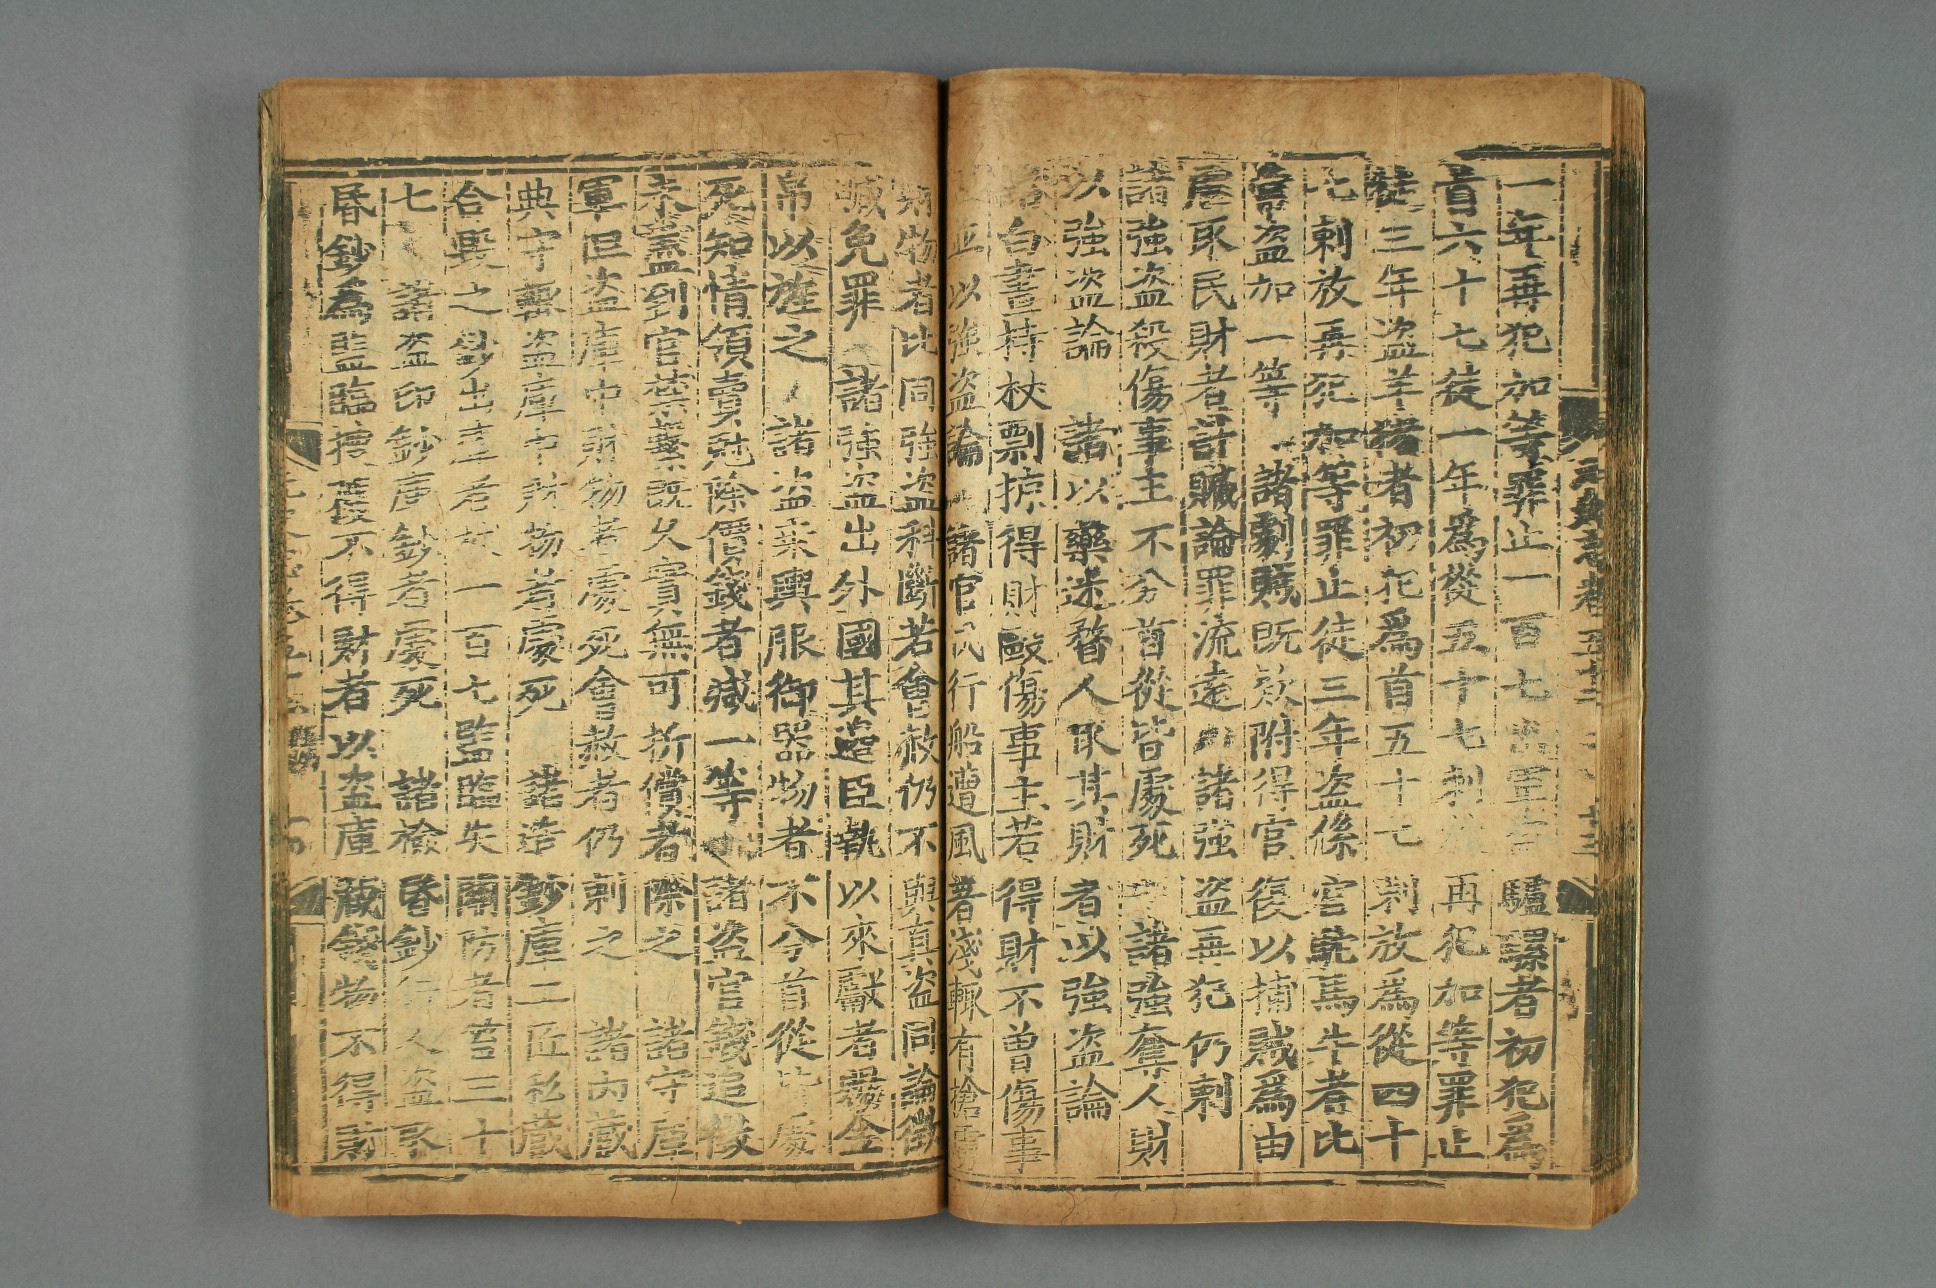 一年再犯加等罪止一百七出軍盗驢騾者初犯爲
首六十七徒一年爲從五十七刺放再犯加等罪止
徒三年盗羊猪者初犯爲首五十七刺放爲從四十
七刺放再犯加等罪止徒三年盗係官駝馬牛者比
常盗加一等 諸劇賊既款附得官復以捕賊爲由
虐取民財者計贓論罪流遠 諸強盗再犯仍刺
諸強盗殺傷事主不分首從皆處死 諸強奪人財
以強盗論 諸以藥迷瞀人取其財者以強盗論
諸白晝持杖剽掠得財毆傷事主若得財不曾傷事
主並以強盗論 諸官民行船遭風著淺輒有搶虜
財物者比同強盗科斷若會赦仍不與真盗同論徴
贓免罪 諸強盗出外國其邊臣執以來獻者賜金
帛以旌之 諸盗乗輿服御器物者不分首從皆處
死知情領賣剋除價錢者減一等 諸盗官錢追徴
未盡到官禁繫既久實無可折償者除之 諸守庫
軍但盗庫中財物者處死會赦者仍刺之 諸内藏
典守輒盗庫中財物者處死 諸造鈔庫工匠私藏
合毁之鈔出庫者杖一百七監臨失關防者笞三十
七 諸盗印鈔庫鈔者處死 諸檢昏鈔行人盗取
昏鈔爲監臨捜獲不得財者以盗庫藏錢物不得財